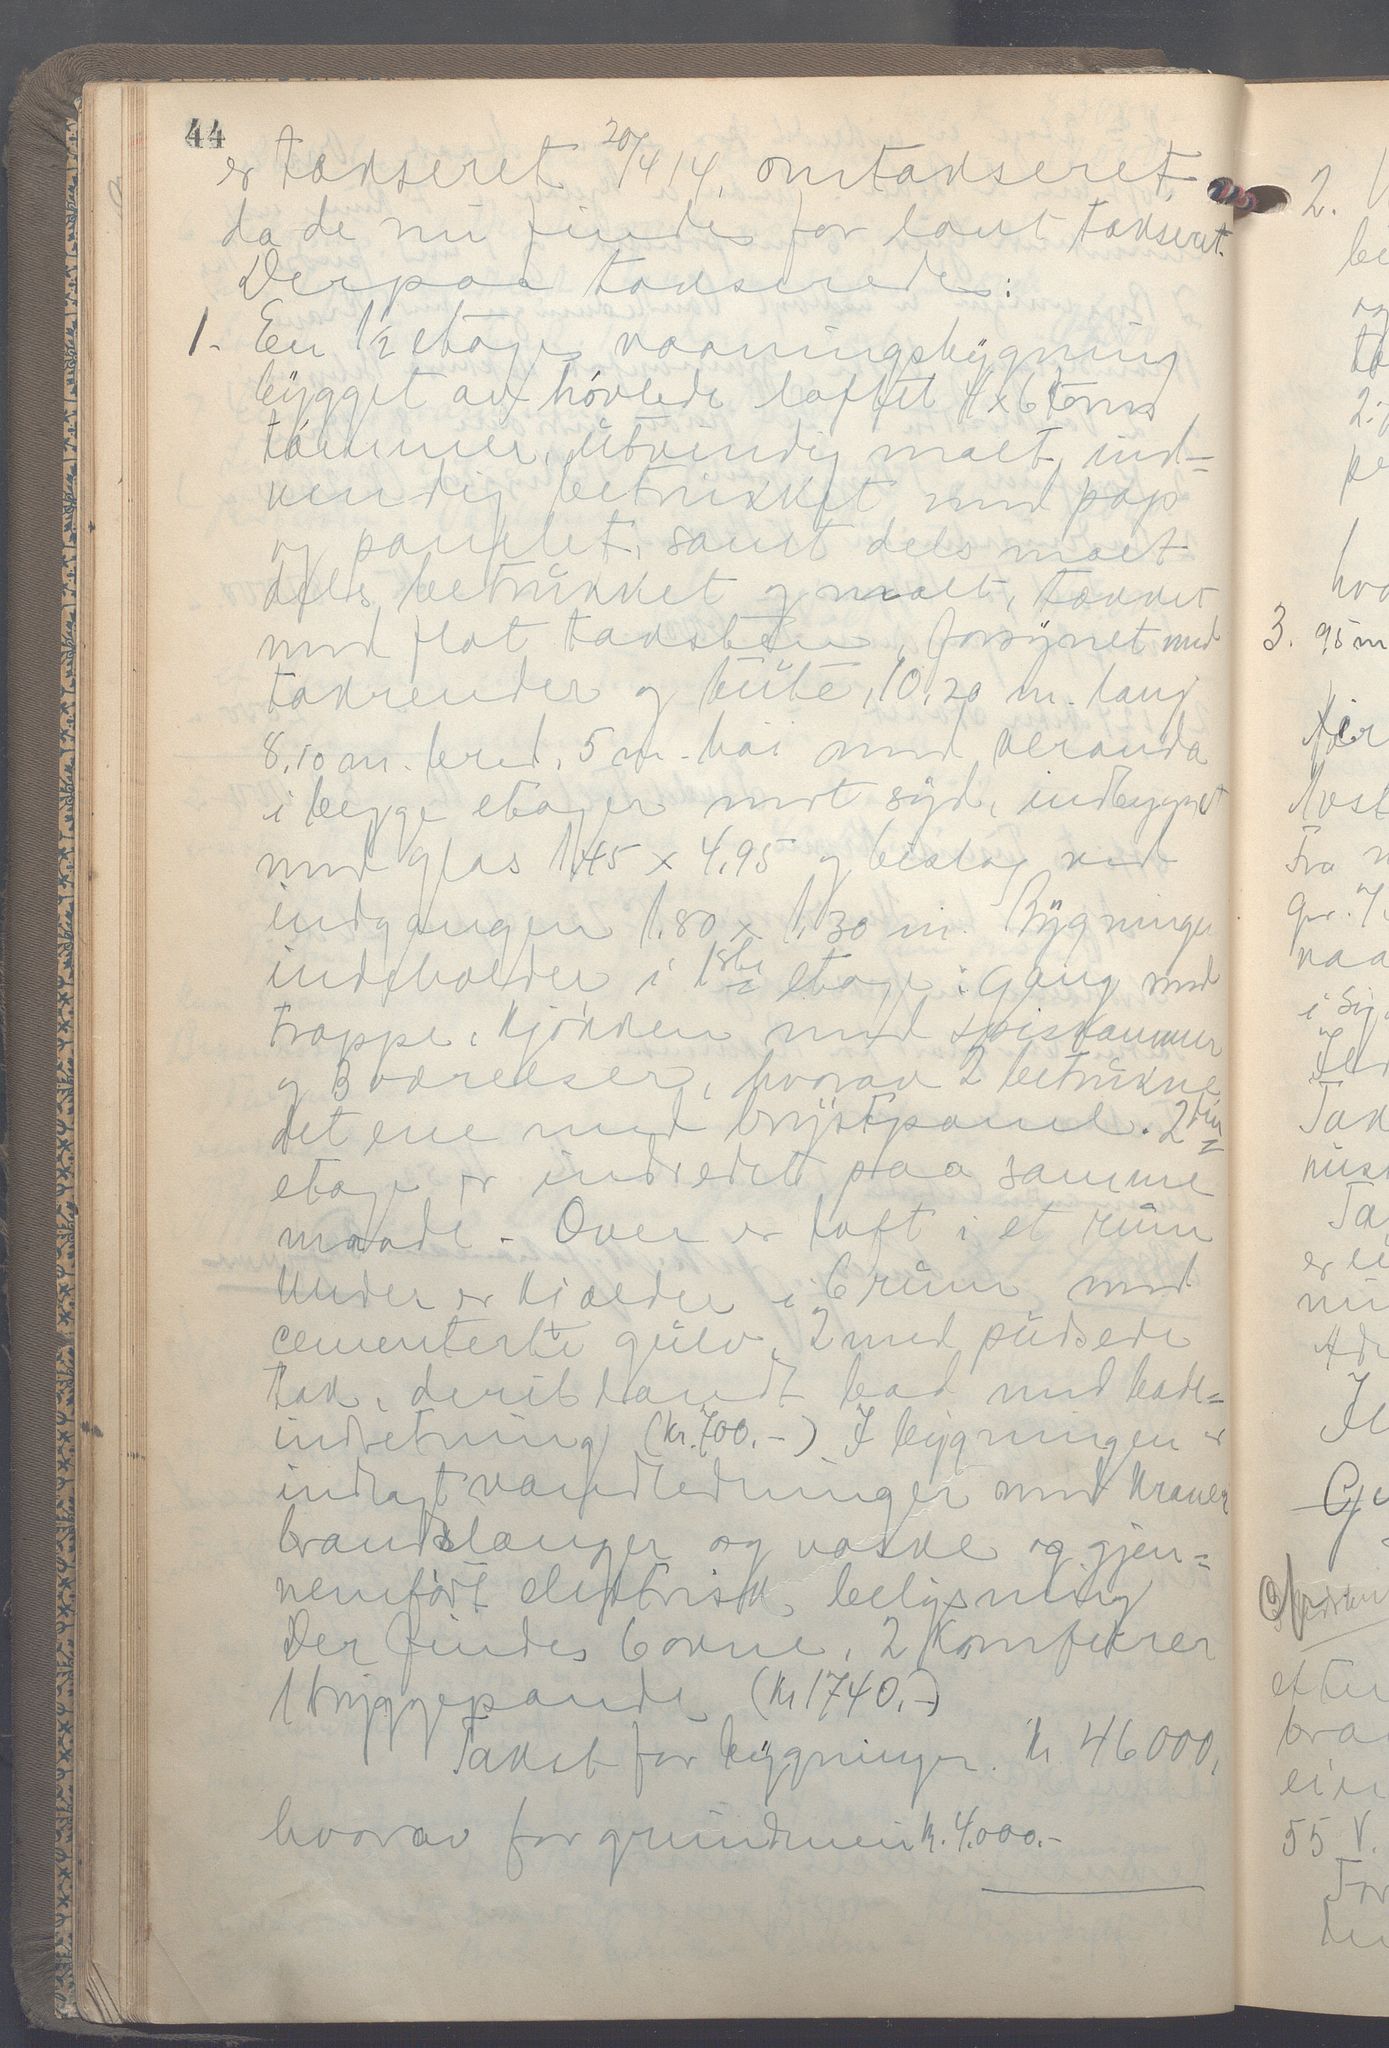 44
er takseret 20/4 14, omtakseret
da de nu findes for lavt takseret.
Derpaa takseredes:
1. En 1 1/2 etages vaaningsbygning
bygget av høvlede laftet 4 x 6 toms
tømmer, utvendig malt, ind=
vendig betrukket med pap
og panelet, samt dels malt
dels betrukket og malt, tækket
med flat taksten, forsynet med
takrender og bute, 10,20 m. lang
8,10 m. bred, 5 m. høi med veranda
i begge etager mot syd, indbygget
med glas 1,45 x 4,95 og bislag ved
indgangen 1,80 x 1,30 m. Bygningen
indeholder i 1ste etage: gang med
trappe, kjøkken med spiskammer
og 3 værelser, hvorav 2 betrukne
det ene med brystpanel. 2den
etage er indredet paa samme
maade. Over er loft i et rum
Under er kjælder i 6 rum med
cementerte gulv, 2 med pudsede
tak, deriblandt bad med bade=
indretning (kr. 700,-) I bygningen er
indlagt vandledninger med kraner
brandslanger og vaske og gjen=
nemført elektrisk belysning
Der findes 6 ovne, 2 komfurer
1 bryggepande (kr 1740,-)
Takst for bygningen. kr. 46000,
hvorav for grundmur kr. 4.000.-
2.
be
og
ta
2.
pe
hva
3. 95 m
Fra
i
Tak
Ta
er
55 V.
For